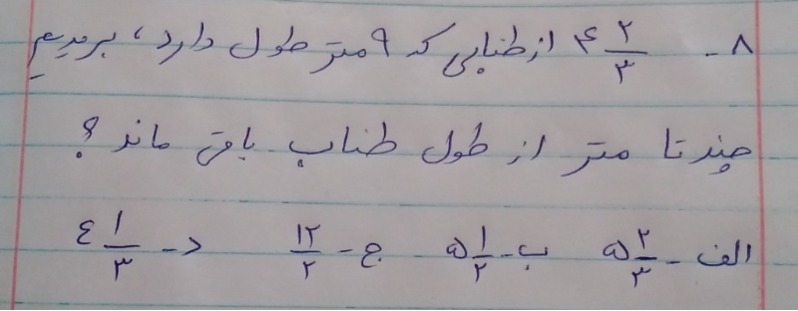 ۸ - ۴ ۲/۳ از طنابی که ۹ متر طول دارد، بریدیم
چند تا متر از طول طناب باقی ماند؟
الف - ۵ ۲/۳ ب - ۵ ۱/۲ ج - ۱۲/۲ د - ٤ ۱/۳